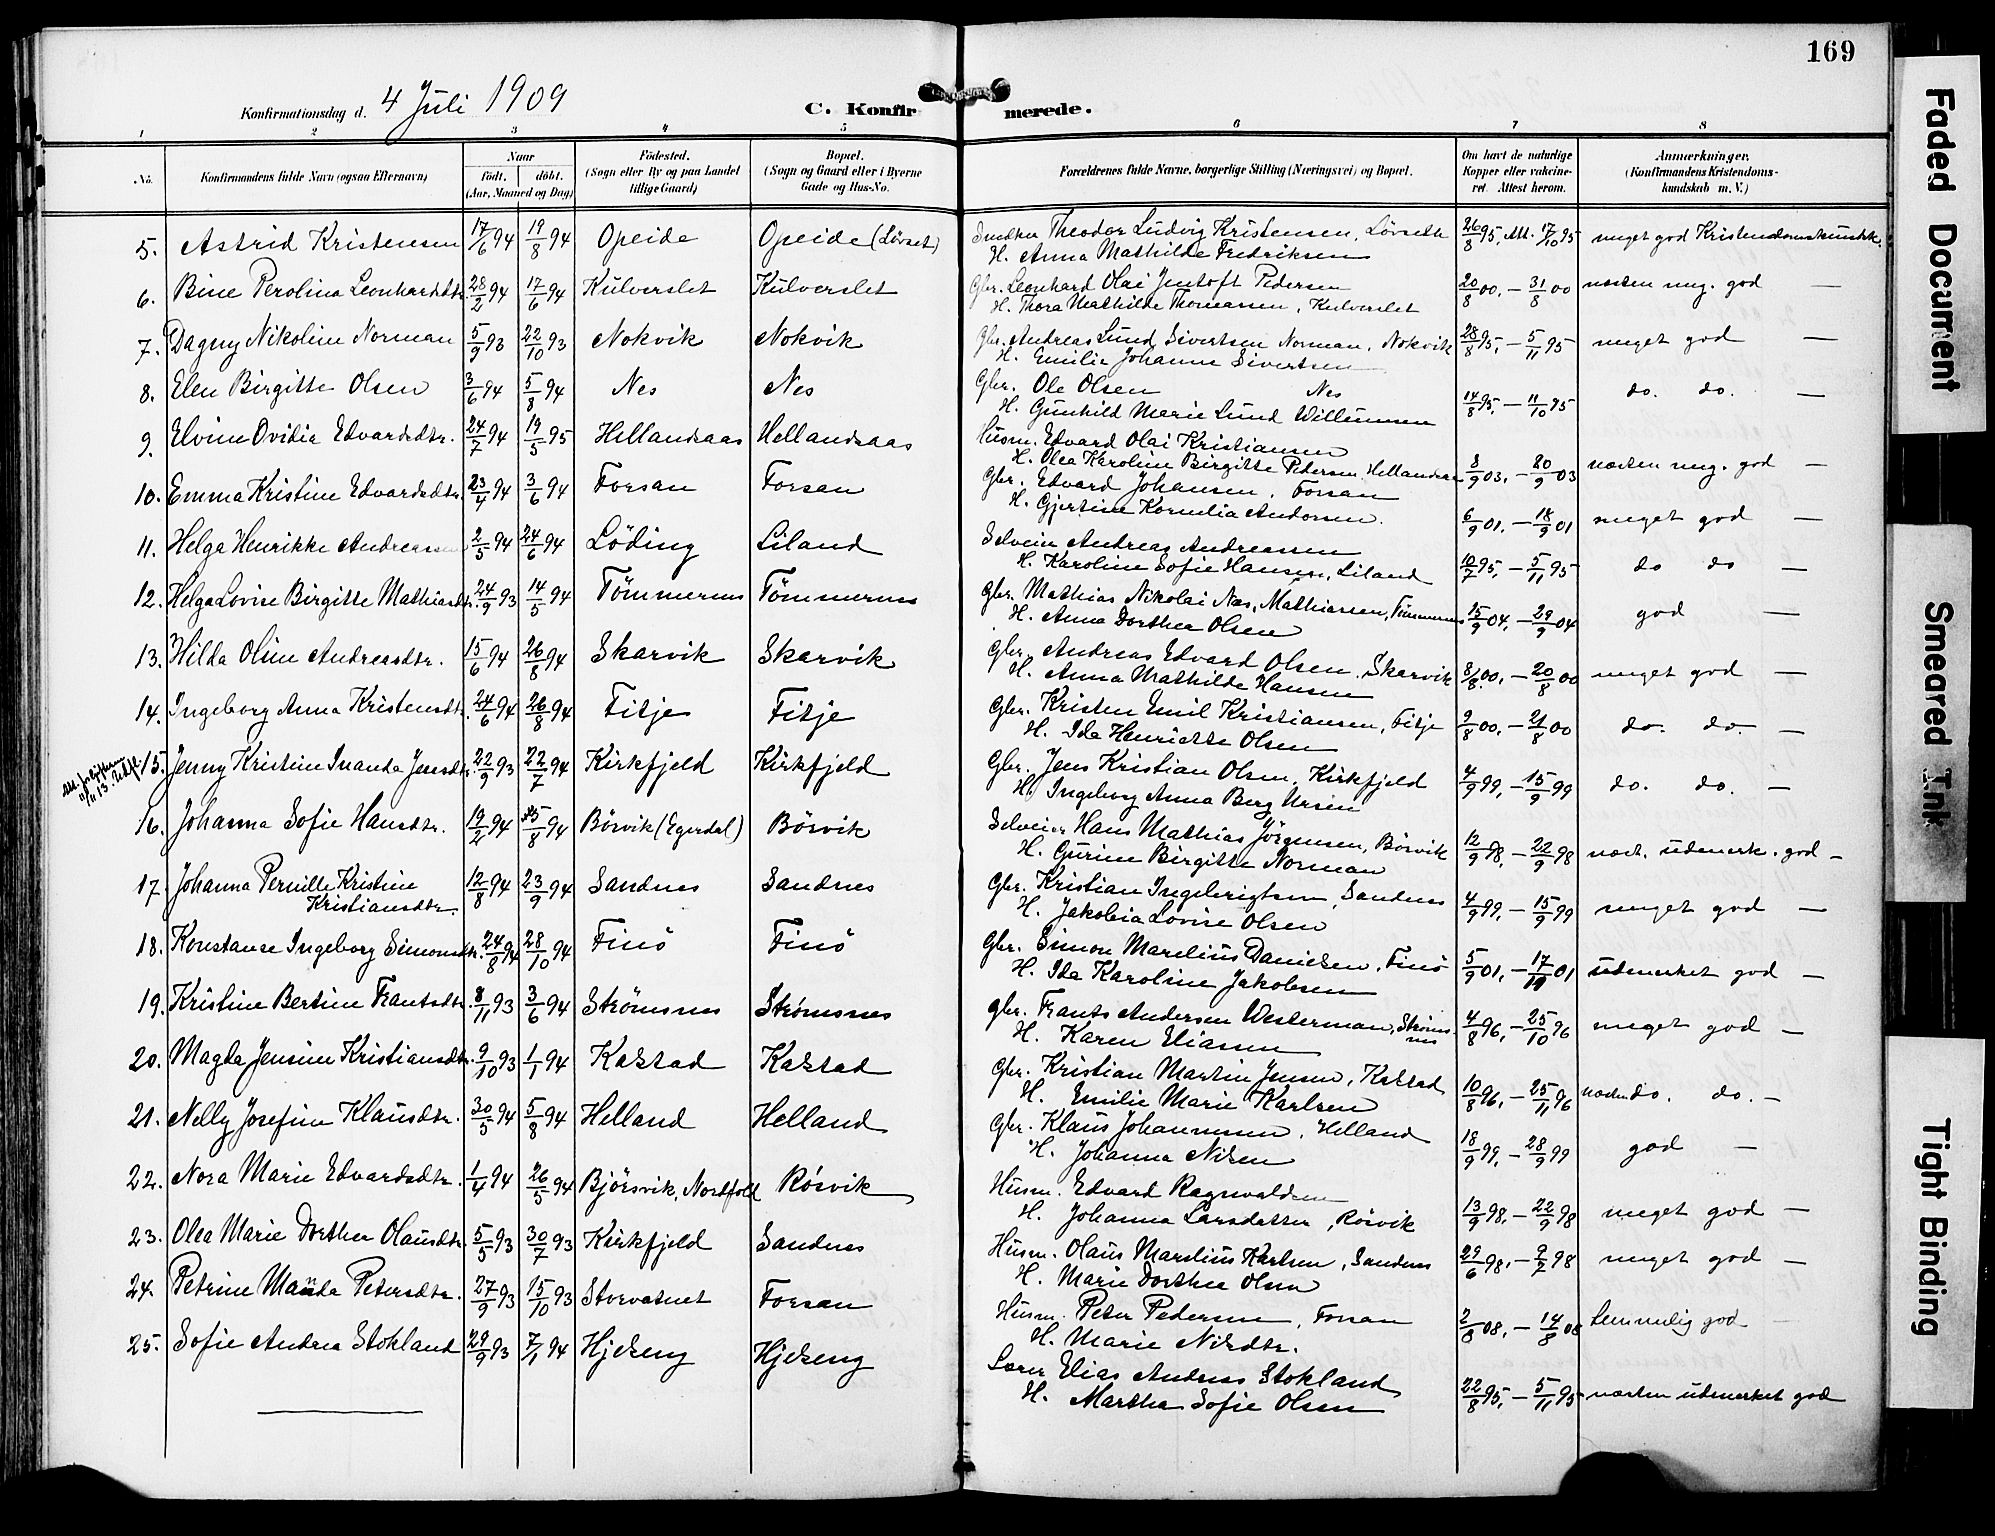 169
Konfirmationsdag d. 4 Juli 1909
C. Konfirmerede.
1 2 3 4 5 6 7 8
No.
Konfirmandens fulde Navn (ogsaa Efternavn)
Naar
født. døbt.
(Aar, Maaned og Dag)
Fødested.
(Sogn eller By og paa Landet
tillige Gaard)
Bopæl.
(Sogn og Gaard eller i Byerne
Gade og Hus-No.
Forældrenes fulde Navne, borgerlige Stilling (Næringsvei) og Bopæl.
Om havt de naturlige
Kopper eller vakcine-
ret. Attest herom.
Anmærkninger.
(Konfirmandens Kristendoms-
kundskab m. V.)
5. Astrid Kristensen 17/6 94 19/8 94 Opeide Opeide (Lövset) Theodor Ludvig Kristensen, Lövseth 26/8 95, Att. 17/10 95 meget god Kristendomskundsk.
H. Anna Mathilde Fredriksen
6. Bine Perolina Leonhardsdtr. 28/2 94 17/6 94 Kulverslet Kulverslet Gbr. Leonhard Olai Jentoft Pedersen 20/8 00, – 31/8 00 næsten meg. god —
H. Thora Mathilde Thomassen, Kulverslet
7. Dagny Nikoline Norman 5/9 93 22/10 93 Nokvik Nokvik Gbr. Andreas Lund Sivertsen Norman, Nokvik 28/8 95, – 5/11 95 meget god —
H. Emilie Johanne Sivertsen
8. Elen Birgitte Olsen 3/6 94 5/8 94 Nes Nes Gbr. Ole Olsen Nes 14/8 95, – 11/10 95 do. do. —
H. Gunhild Marie Lund Willumsen
9. Elvine Ovidia Edvardsdtr. 24/7 94 19/5 95 Hellandsaas Hellandsaas Husm. Edvard Olai Kristiansen
H. Olea Karoline Birgitte Pedersen, Hellandsaas 8/9 03, – 20/9 03 næsten meg. god —
10. Emma Kristine Edvardsdtr. 23/4 94 3/6 94 Forsan Forsan Gbr. Edvard Johansen, Forsan
H. Gjertine Kornelia Andorsen. 6/9 01, – 18/9 01 meget god —
11. Helga Henrikke Andreassen 2/5 94 24/6 94 Löding Liland Selveier Andreas Andreassen
H. Karoline Sofie Hansen, Liland 10/7 95, – 5/11 95 do do —
12. Helga Lovise Birgitte Mathiasdtr. 24/9 93 14/5 94 Tömmernes Tömmernes Gbr. Mathias Nikolai Nas. Mathiassen, Tömmernes 15/9 04, – 29/9 04 god —
H. Anna Dorthea Olsen
13. Hilda Oline Andreasdtr. 15/6 94 26/8 94 Skarvik Skarvik Gbr. Andreas Edvard Olsen, Skarvik 8/8 00, – 20/8 00 meget god —
H. Anna Mathilde Hansen
14. Ingeborg Anna Kristensdtr. 24/6 94 26/8 94 Fitje Fitje Gbr. Kristen Emil Kristiansen, Fitje 9/8 00, – 21/8 00 do. do. —
H. Ida Henriette Olsen
15. Jenny Kristine Inanda Jensdtr. 22/9 93 22/7 94 Kirkfjeld Kirkfjeld Gbr. Jens Kristian Olsen, Kirkfjeld 4/9 99, – 15/9 99 do. do. —
H. Ingeborg Anna Berg Ursin
16. Johanna Sofie Hansdtr. 19/2 94 5/8 94 Börvik (Egerdal) Börvik Selveier Hans Mathias Jörgensen, Börvik 12/9 98, – 22/9 98 næst. udmerk. god —
H. Gurine Birgitte Norman
17. Johanna Pernille Kristine
Kristiansdtr. 12/8 94 23/9 94 Sandnes Sandnes Gbr. Kristian Ingebrigtsen, Sandnes 4/9 99, – 15/9 99 meget god —
H. Jakobia Lovise Olsen
18. Konstanse Ingeborg Simonsdtr. 24/8 94 28/10 94 Finö Finö Gbr. Simon Marelius Danielsen, Finö 5/9 01, – 17/10 01 udmerket god —
H. Ida Karoline Jakobsen
19. Kristine Bertine Frantsdtr. 8/11 93 3/6 94 Strömsnes Strömsnes Gbr. Frants Andersen Westerman, Strömsnes 4/8 96, – 25/10 96 meget god —
H. Karen Eliassen
20. Magda Jensine Kristiansdtr. 9/10 93 1/1 94 Kalstad Kalstad Gbr. Kristian Martin Jensen, Kalstad 10/8 96, – 25/11 96 næsten do. do. —
H. Emilie Marie Karlsen
21. Nelly Josefine Klausdtr. 30/5 94 5/8 94 Helland Helland Gbr. Klaus Johannessen, Helland 18/9 99, – 28/9 99 god —
H. Johanna Nilsen
22. Nora Marie Edvardsdtr. 1/4 94 26/5 94 Björsvik, Nordfold Rösvik Husm. Edvard Ragnvaldsen
H. Johanna Larsdatter, Rösvik 13/9 98, – 22/9 98 meget god —
23. Olea Marie Dorthea Olausdtr. 5/5 93 30/7 93 Kirkfjeld Sandnes Husm. Olaus Marelius Karlsen, Sandnes 29/6 98, – 9/7 98 meget god —
H. Marie Dorthea Olsen
24. Petrine Manda Petersdtr. 27/9 93 15/10 93 Storvatnet Forsan Husm. Peter Pedersen, Forsan 2/8 08, – 14/8 08 temmelig god
H. Marie Nilsdtr.
25. Sofie Andrea Stokland 29/9 93 7/1 94 Hjelseng Hjelseng Lærer Elias Andreas Stokland
H. Martha Sofie Olsen 22/8 95, – 5/11 95 næsten udmerket god
Faded Document
Smeared Ink
Tight Binding